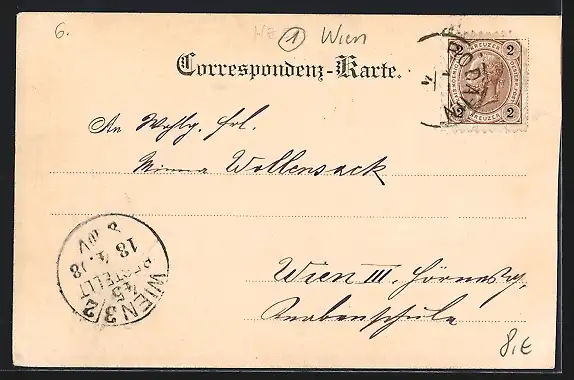 6.
1 Wien
Correspondenz-Karte.
2 KREUZER 2
2 KREUZER 2
RODAUN
An Wohlg. Frl.
Minna Wollensack
Wien III. Hörnesg.
Knabenschule
WIEN 3/2
45
BESTELLT
18.4.98
8.€